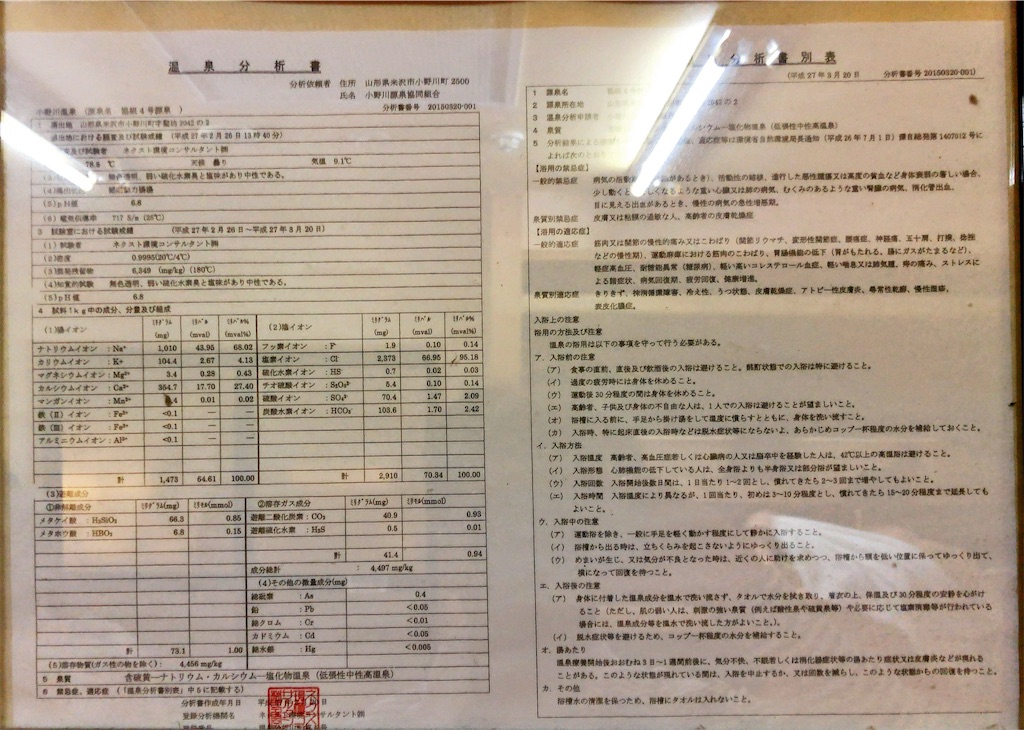 温泉分析書
分析依頼者 住所 山形県米沢市小野川町2500
氏名 小野川源泉協同組合
分析書番号 20150320-001
小野川温泉 (源泉名 協組4号源泉 )
1 湧出地 山形県米沢市小野川町
2042の2
湧出地における調査及び試験成績 (平成27年2月26日13時40分)
試験者 ネクスト環境コンサルタント㈱
℃ 天候 曇り 気温 0.1℃
無色透明、弱い硫化水素臭と塩味があり中性である。
(5)pH値 6.8
(6)電気伝導率 717 S/m (25℃)
3 試験室における試験成績 (平成27年2月26日~平成27年3月20日)
(1)試験者 ネクスト環境コンサルタント㈱
(2)密度 0.9995(20℃/4℃)
(3)蒸発残留物 6,349 (mg/kg) (180℃)
(4)知覚的試験 無色透明、弱い硫化水素臭と塩味があり中性である。
(5)pH値 6.8
4 試料1kg中の成分、分量及び組成
(1)陽イオン ミリグラム(mg) ミリバル(mval) ミリバル%(mval%)
ナトリウムイオン :Na⁺ 1,010 43.95 68.02
カリウムイオン :K+ 104.4 2.67 4.13
マグネシウムイオン:Mg²⁺ 3.4 0.28 0.43
カルシウムイオン :Ca²⁺ 354.7 17.70 27.40
マンガンイオン :Mn²⁺ 0.01 0.02
鉄(Ⅱ)イオン :Fe²⁺ <0.1 — —
鉄(Ⅲ)イオン <0.1 — —
アルミニウムイオン:Al³⁺ <0.1 — —
計 1,473 64.61 100.00
(2)陰イオン ミリグラム(mg) ミリバル(mval) ミリバル%(mval%)
フッ素イオン :F⁻ 1.9 0.10 0.14
塩素イオン :Cl⁻ 2,373 66.95 95.18
硫化水素イオン :HS 0.7 0.02 0.03
チオ硫酸イオン :S₂O₃²⁻ 5.4 0.10 0.14
硫酸イオン :SO₄²⁻ 70.4 1.47 2.09
炭酸水素イオン :HCO₃⁻ 103.6 1.70 2.42
計 2,910 70.34 100.00
(3)遊離成分
①非解離成分 ミリグラム(mg) ミリモル(mmol)
メタケイ酸 :H₂SiO₃ 66.3 0.85
メタホウ酸 :HBO₂ 6.8 0.15
計 73.1 1.00
②溶存ガス成分 ミリグラム(mg) ミリモル(mmol)
遊離二酸化炭素:CO₂ 40.9 0.93
遊離硫化水素 :H₂S 0.5 0.01
計 41.4 0.94
成分総計 : 4,497 mg/kg
(4)その他の微量成分(mg)
総砒素 :As 0.4
鉛 :Pb <0.05
総クロム :Cr <0.01
カドミウム :Cd <0.05
総水銀 :Hg <0.005
(5)溶存物質(ガス性の物を除く): 4,456 mg/kg
5 泉質 含硫黄—ナトリウム・カルシウム—塩化物温泉(低張性中性高温泉)
6 禁忌症、適応症 (「温泉分析書別表」中5に記載する)
分析書作成年月日
登録分析機関名
コンサルタント㈱
分析書別表
(平成27年3月20日 分析書番号 20150320-001)
1 源泉名
2 源泉所在地
2042の2
3 温泉分析申請者
4 泉質
シウム—塩化物温泉(低張性中性高温泉)
5 分析結果による
適応症等は環境省自然環境局長通知(平成26年7月1日)環自総発第1407012号に
よれば次のとおり
【浴用の禁忌症】
一般的禁忌症 病気の活動期
があるとき)、活動性の結核、進行した悪性腫瘍又は高度の貧血など身体衰弱の著しい場合、
少し動くと
しくなるような重い心臓又は肺の病気、むくみのあるような重い腎臓の病気、消化管出血、
目に見える出血があるとき、慢性の病気の急性増悪期。
泉質別禁忌症 皮膚又は粘膜の過敏な人、高齢者の皮膚乾燥症
【浴用の適応症】
一般的適応症 筋肉又は関節の慢性的痛み又はこわばり(関節リウマチ、変形性関節症、腰痛症、神経痛、五十肩、打撲、捻挫
などの慢性期)、運動麻痺における筋肉のこわばり、胃腸機能の低下(胃がもたれる、腸にガスがたまるなど)、
軽症高血圧、耐糖能異常(糖尿病)、軽い高コレステロール血症、軽い喘息又は肺気腫、痔の痛み、ストレスに
よる諸症状、病気回復期、疲労回復、健康増進。
泉質別適応症 きりきず、抹消循環障害、冷え性、うつ状態、皮膚乾燥症、アトピー性皮膚炎、尋常性乾癬、慢性湿疹、
表皮化膿症。
入浴上の注意
浴用の方法及び注意
温泉の浴用は以下の事項を守って行う必要がある。
ア.入浴前の注意
(ア) 食事の直前、直後及び飲酒後の入浴は避けること。酩酊状態での入浴は特に避けること。
(イ) 過度の疲労時には身体を休めること。
(ウ) 運動後30分程度の間は身体を休めること。
(エ) 高齢者、子供及び身体の不自由な人は、1人での入浴は避けることが望ましいこと。
(オ) 浴槽に入る前に、手足から掛け湯をして温度に慣らすとともに、身体を洗い流すこと。
(カ) 入浴時、特に起床直後の入浴時などは脱水症状等にならないよ、あらかじめコップ一杯程度の水分を補給しておくこと。
イ.入浴方法
(ア) 入浴温度 高齢者、高血圧症若しくは心臓病の人又は脳卒中を経験した人は、42℃以上の高温浴は避けること。
(イ) 入浴形態 心肺機能の低下している人は、全身浴よりも半身浴又は部分浴が望ましいこと。
(ウ) 入浴回数 入浴開始後数日間は、1日当たり1~2回とし、慣れてきたら2~3回まで増やしてもよいこと。
(エ) 入浴時間 入浴温度により異なるが、1回当たり、初めは3~10分程度とし、慣れてきたら15~20分程度まで延長しても
よいこと。
ウ.入浴中の注意
(ア) 運動浴を除き、一般に手足を軽く動かす程度にして静かに入浴すること。
(イ) 浴槽から出る時は、立ちくらみを起こさないようにゆっくり出ること。
(ウ) めまいが生じ、又は気分が不良となった時は、近くの人に助けを求めつつ、浴槽から頭を低い位置に保ってゆっくり出て、
横になって回復を待つこと。
エ.入浴後の注意
(ア) 身体に付着した温泉成分を温水で洗い流さず、タオルで水分を拭き取り、着衣の上、保温及び30分程度の安静を心がけ
ること(ただし、肌の弱い人は、刺激の強い泉質(例えば酸性泉や硫黄泉等)や必要に応じて塩素消毒等が行われている
場合には、温泉成分等を温水で洗い流した方がよいこと。)。
(イ) 脱水症状等を避けるため、コップ一杯程度の水分を補給すること。
オ.湯あたり
温泉療養開始後おおむね3日~1週間前後に、気分不快、不眠若しくは消化器症状等の湯あたり症状又は皮膚炎などが現れる
ことがある。このような状態が現れている間は、入浴を中止するか、又は回数を減らし、このような状態からの回復を待つこと。
カ.その他
浴槽水の清潔を保つため、浴槽にタオルは入れないこと。